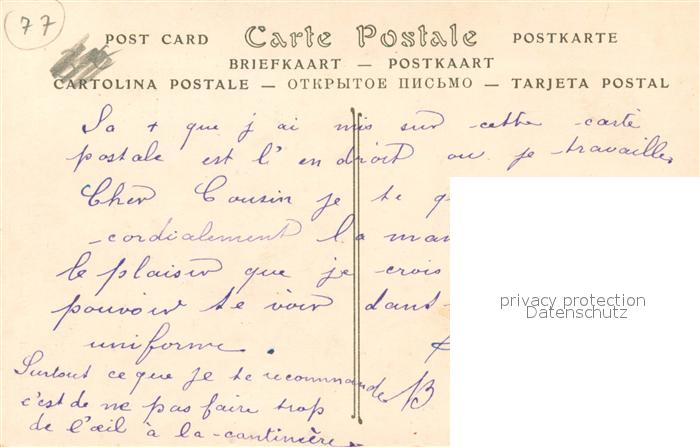 77
POST CARD Carte Postale POSTKARTE
BRIEFKAART — POSTKAART
CARTOLINA POSTALE — ОТКРЫТОЕ ПИСЬМО — TARJETA POSTAL
La + que j ai mis sur cette carte
postale est l'en droit ou je travaille
Cher Cousin je te
cordialement la
le plaisir que je crois
pouvoir te voir dant
uniforme.
Surtout ce que je te recommande
c'est de ne pas faire trop
de l'œil à la cantinière
privacy protection
Datenschutz